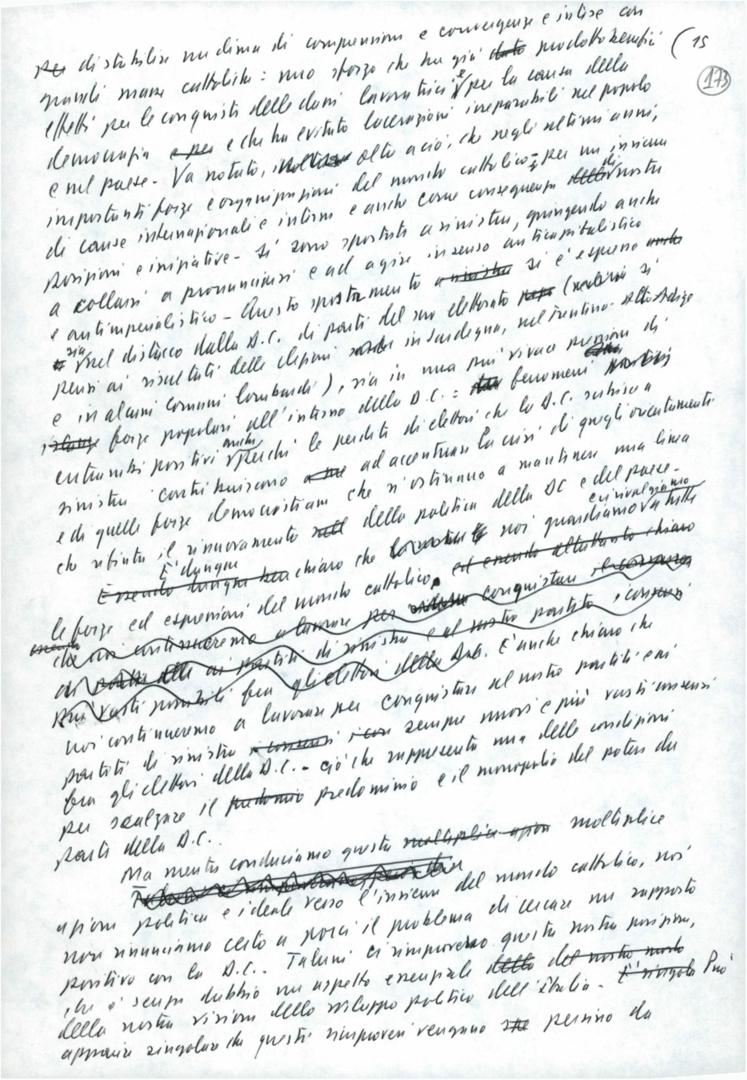 per di stabilire un clima di comprensione e convergenze e intese con (15
grandi masse cattoliche: uno sforzo che ha già dato prodotto benefici 173
effetti per le conquiste delle classi lavoratrici e per la causa della
democrazia e per e che ha evitato lacerazioni irreparabili nel popolo
e nel paese - Va notato, inoltre oltre a ciò, che negli ultimi anni,
importanti forze e organizzazioni del mondo cattolico - per un insieme
di cause internazionali e interne e anche come conseguenza delle di nostre
posizioni e iniziative - si sono spostate a sinistra, giungendo anche
a collarsi a pronunciarsi e ad agire in senso anticapitalistico
e antimperialistico - Questo spostamento a sinistra si è espresso
sia nel distacco dalla D.C. di parti del suo elettorato (si
pensi ai risultati delle elezioni in Sardegna, nel Trentino-Alto Adige
e in alcuni comuni lombardi), sia in una più vivace pressione di
forze popolari all'interno della D.C.: fenomeni positivi
entrambi positivi anche perché le perdite di elettori che la D.C. subisce a
sinistra contribuiscono ad accentuare la crisi di quegli orientamenti
e di quelle forze democristiane che si ostinano a mantenere una linea
che rifiuta il rinnovamento della politica della DC e del paese -
Essendo dunque E' dunque chiaro che noi guardiamo e ci rivolgiamo a tutte
le forze ed espressioni del mondo cattolico, ed essendo altrettanto chiaro
che noi continueremo a lavorare per conquistare il consenso
ai partiti di sinistra e al nostro partito i consensi
più vasti possibili fra gli elettori della D.C. E' anche chiaro che
noi continueremo a lavorare per conquistare al nostro partito e ai
partiti di sinistra i consensi sempre nuovi e più vasti consensi
fra gli elettori della D.C. - ciò che rappresenta una delle condizioni
per scalzare il predominio predominio e il monopolio del potere da
parte della D.C..
Ma mentre conduciamo questa molteplice azione molteplice
azione politica e ideale verso l'insieme del mondo cattolico, noi
non rinunciamo certo a porci il problema di cercare un rapporto
positivo con la D.C.. Taluni ci rimproverano questa nostra posizione,
che è senza dubbio un aspetto essenziale della del nostro modo
della nostra visione dello sviluppo politico dell'Italia - E' singolare Può
apparire singolare che questi rimproveri vengano persino da